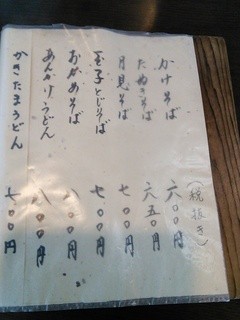 (税抜き)
かけそば 六〇〇円
たぬきそば 六五〇円
月見そば 七〇〇円
玉子とじそば 七〇〇円
おかめそば 八〇〇円
あんかけうどん 八〇〇円
かきたまうどん 七〇〇円